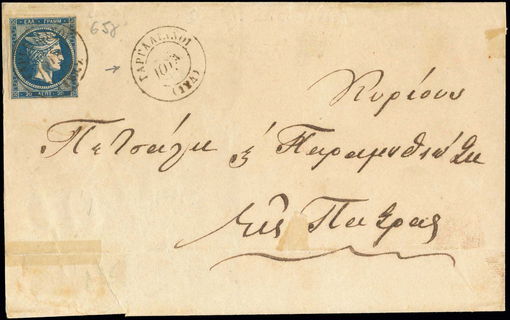 ΕΛΛ. ΓΡΑΜΜ.
20 ΛΕΠΤ. 20
658
ΓΑΡΓΑΛΙΑΝΟΙ
ΙΟΥΛ
Κυρίους
Πετσάλη & Παραμυθιώτη
Εἰς Πάτρας